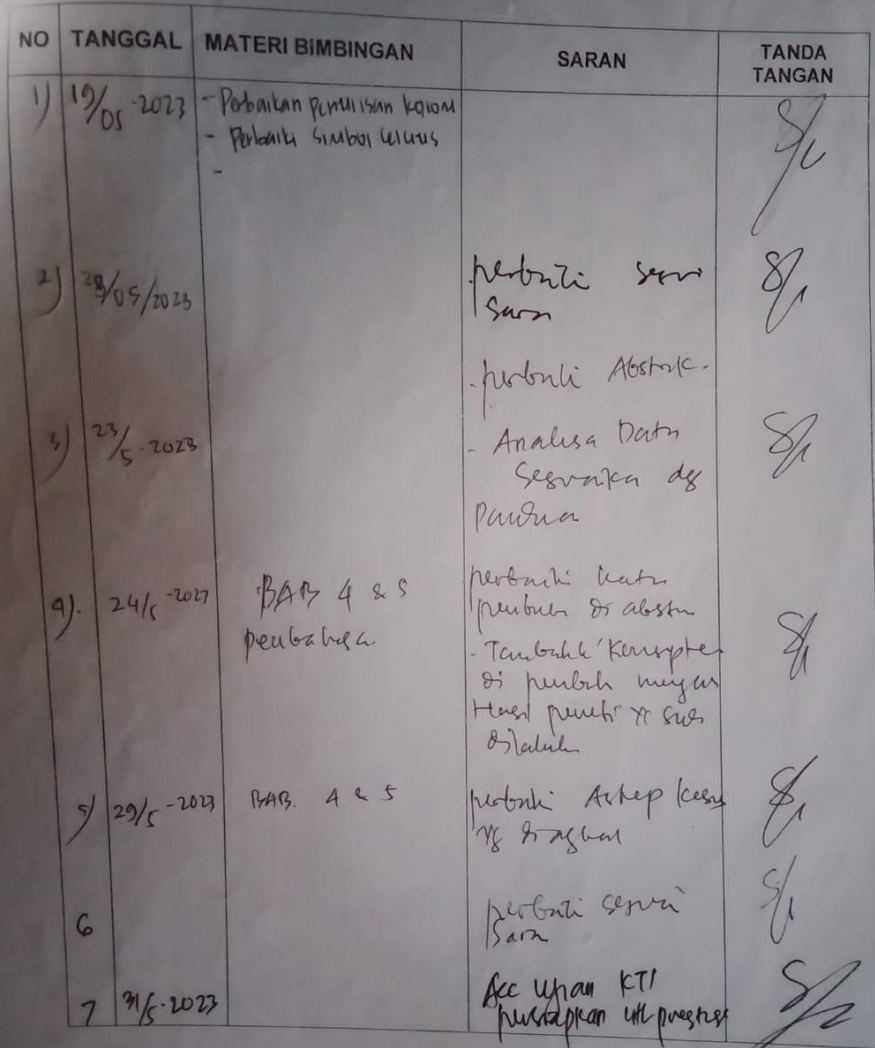 NO TANGGAL MATERI BIMBINGAN SARAN TANDA TANGAN
1) 19/05-2023 - Perbaikan penulisan kolom
- Perbaiki simbol celcius
-
2) /05/2023 perbaiki sesuai
saran
- perbaiki Abstrak.
3) 23/5-2023 - Analisa Data
Sesuaika dg
Pandua
4). 24/5-2023 BAB 4 & 5 perbaiki kata
pembahasa di abstra
- Tambahk Konsep
di pembah
Hasil peneliti yg
dilakuk
5) 29/5-2023 BAB. 4 & 5 perbaiki Askep kasus
yg
6 perbaiki sesuai
saran
7 31/5-2023 Acc ujian KTI
persiapkan utk